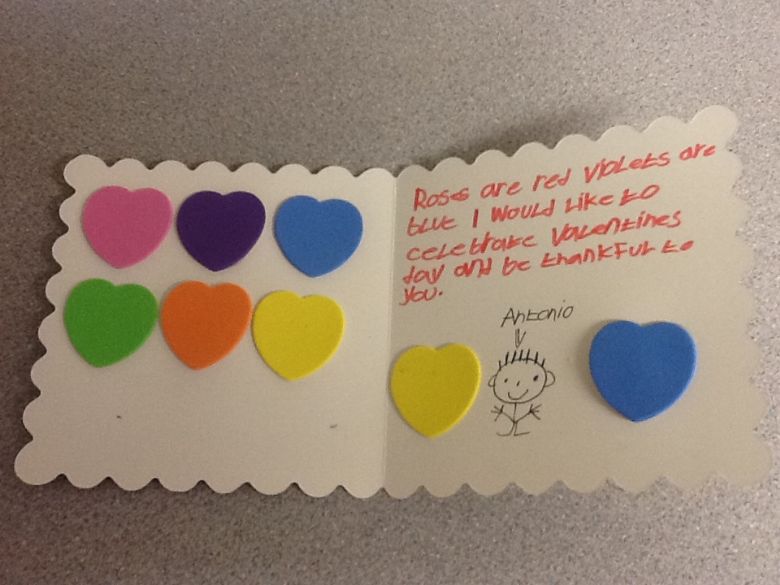 Roses are red violets are
blue I would like to
celebrate valentines
day and be thankful to
you.
Antonio